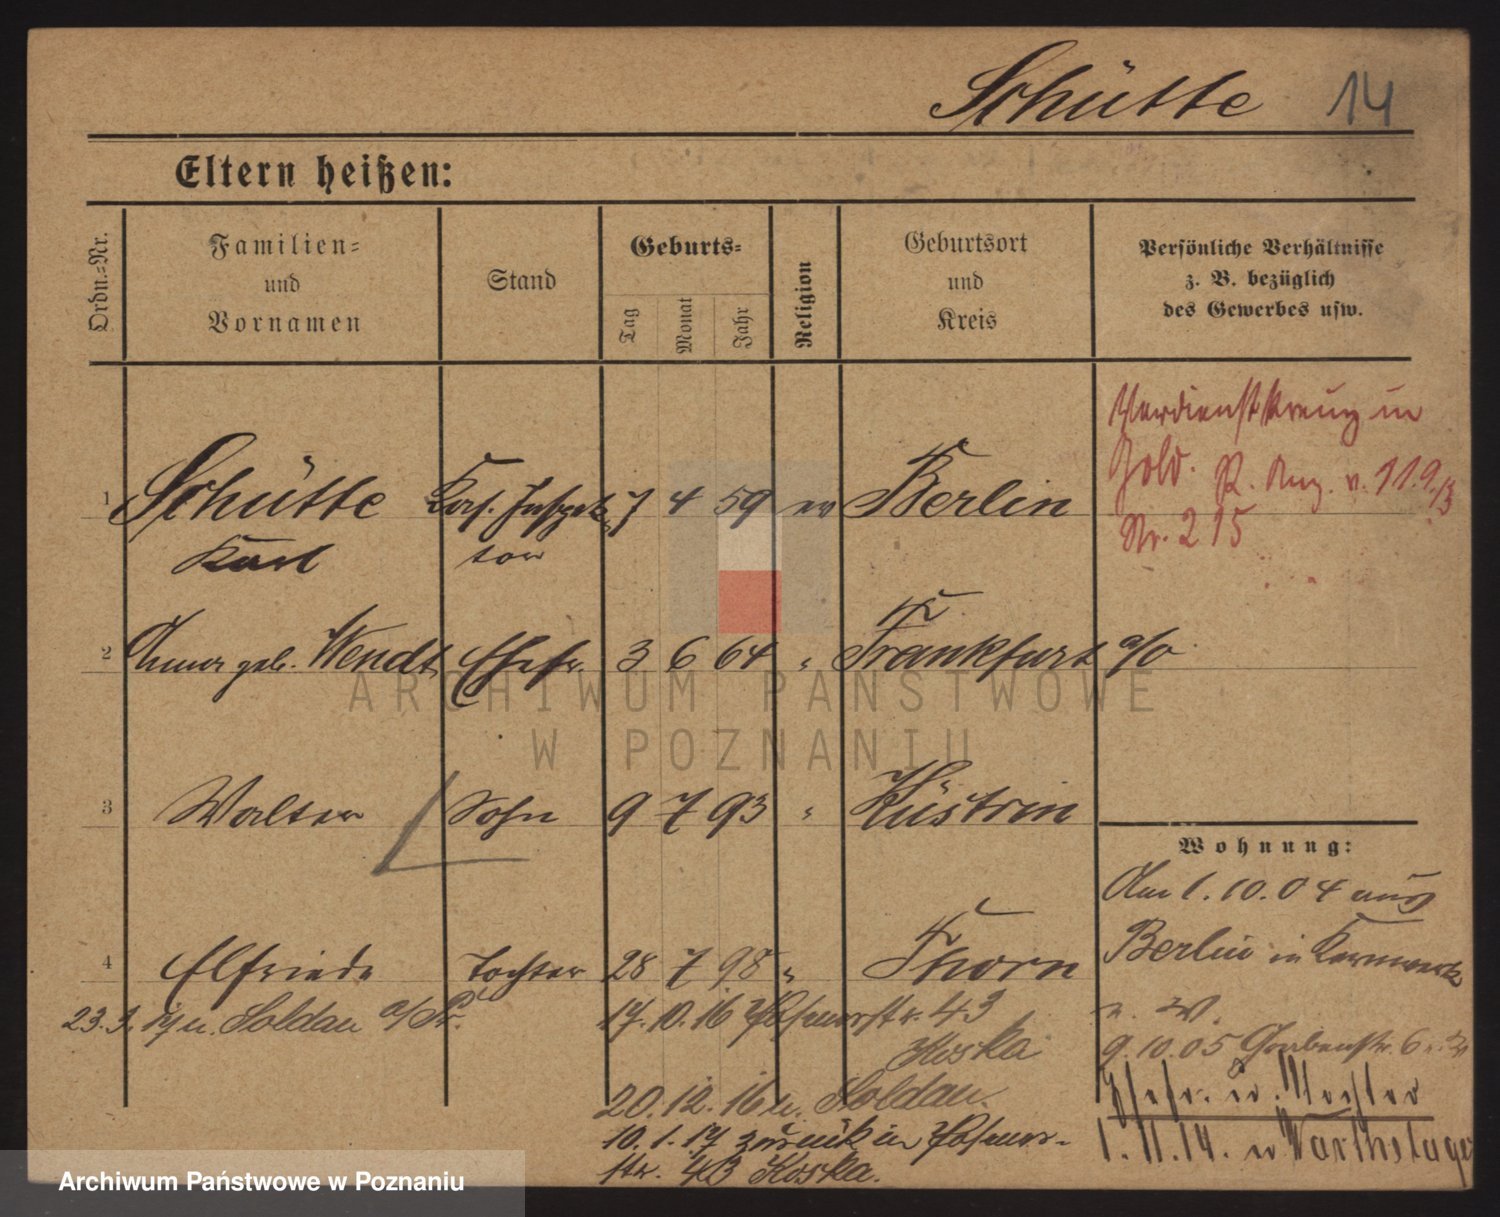 Schütte 14
Eltern heißen:
Ordn.-Nr.
Familien-
und
Vornamen
Stand
Geburts-
Tag
Monat
Jahr
Religion
Geburtsort
und
Kreis
Persönliche Verhältnisse
z. B. bezüglich
des Gewerbes usw.
Verdienstkreuz in
Gold. R. Anz. v. 11.9.13
Nr. 215
1 Schütte Kas. Inspek- 7 4 59 ev Berlin
Karl tor
2 Anna geb. Wendt Ehefr. 3 6 64 " Frankfurt a/o
3 Walter Sohn 9 7 93 " Küstrin
Wohnung:
Am 1.10.04 aus
4 Elfriede Tochter 28 7 98 " Thorn
Berlin in Kernwerk
23.3.17 n. Soldau a/Pr. 17.10.16 Posenerstr. 43
Koska
9.10.05 Grabenstr. 6
20.12.16 n. Soldau.
Ehefr. u. Tochter
10.1.17 zurück in Posener-
str. 43 Koska.
1.11.14. Warthelager
ARCHIWUM PAŃSTWOWE
W POZNANIU
Archiwum Państwowe w Poznaniu